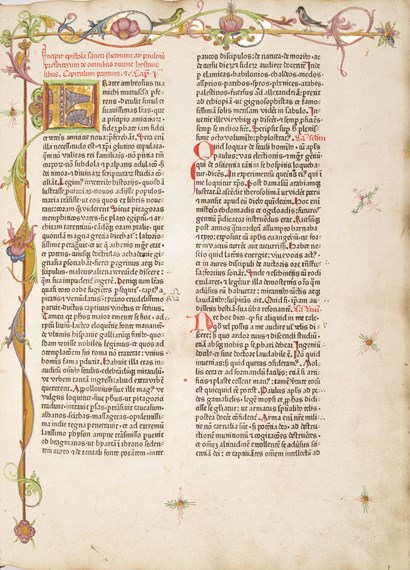 Incipit epistola sancti Iheronimi ad paulinū
presbiterum de omnibus diuine hystorie
libris. Capitulum primum
Frater ambrosius tua
michi munuscula per-
ferens · detulit simul et
suauissimas lr̄as · que
a pricipio amiciciarū ·
fidē
et veteris amicicie noua pferebāt. Vera enī
illa necessitudo est · et xpi glutino copula-
ta: quā nō vtilitas rei familiaris · nō pn̄tia tm̄
corporū · nō subdola et palpans adulatio ·
dei timor · et diuinaꝝ scripturaꝝ studia con-
ciliāt. Legim⁹ in veteribꝰ historijs · quosdā
lustrasse puintias · nouos adijsse populos ·
maria trāsisse: vt eos quos ex libris noue-
rant · coram quoqꝫ viderent. Sicut pitagoras
memphiticos vates · sic plato egiptū · et ar-
chitam tarentinū · eādēqꝫ oram ytalie · que
quondā magna grecia dicebat̄:
sissime peragrauit: vt qui athenis mgr̄ erat ·
et potens · cuiusqꝫ doctrinas achademie gi-
gnasia psonabāt: fieret peregrinus atqꝫ dis-
cipulus · malens aliena verecunde discere:
qꝫ̄ sua impudēter ingerere. Deniqꝫ cum lr̄as
quasi toto orbe fugientes psequit̄ · captus a
piratis et venūdatus · tyranno crudelissimo
paruit: ductus captiuus vinctus et seruus.
Tamen quia phūs maior emente se fuit · ad
tytū liuiū · lacteo eloquentie fonte manante ·
de vltimis hispanie galliarūqꝫ finibꝰ · quos-
dam venisse nobiles legimus · et quos ad
cōtemplationem sui roma nō traxerat · vnius
hominis fama pduxit. Habuit illa etas in-
auditū omnibꝰ seculis · celebrandūqꝫ miraculū:
vt vrbem tantā ingressi · aliud extra vrbē
quererent. Apollonius siue ille magꝰ · vt
vulgus loquitur · siue phūs · vt pitagorici
tradunt · intrauit psas · ptrāsiuit caucasum ·
albanos · scithas · massagetas · opulentissi-
ma indie regna penetrauit · et ad extremū ·
latissimo physon amne trāsmisso puenit
ad bragmanas · vt hyarcā ī throno seden-
tem aureo · et de tantali fonte potantē · inter
paucos discipulos · de natura · de moribꝰ · ac
de cursu dieꝝ et sideꝝ audiret docentē. Inde
p elamitas · babilonios · chaldeos · medos ·
assyrios · parthos · syros · phenices · arabes ·
palestinos · reuersus ad alexandriā: prexit
ad ethiopiā · vt gignosophistas et famo-
sissimā solis mensam videret in sabulo. In-
uenit ille vir vbiqꝫ qd disceret · et semp pficiēs ·
semp se melior fieret. Scripsit sup hoc plenis-
sime octo voluminibꝰ · phylostratꝰ.
Quid loquar de seculi hominibꝰ · cū apl̄s
paulus · vas electionis · et mgr̄ gentiū ·
qui de cōscientia tanti in se hospitis loqueba-
tur · dicens. An experimentū queritis eiꝰ · qui ī
me loquitur xp̄s. Post damascū arabiamqꝫ
lustratā: ascēdit iherosolimā vt videret petrū ·
et mansit apud eū diebꝰ quīdecim. Hoc enī
misterio ebdomadis et ogdoadis: futurꝰ
gentium predicator instruendus erat. Rursumqꝫ
post annos quatuordecim assumpto barnaba
et tyto: exposuit cū aplīs euangeliū · ne for-
te in vacuum curreret aut cucurrisset. Habet ne-
scio quid latentis energie · viue vocis actꝰ ·
et in aures discipuli de auctoris ore trāsfu-
sa: fortius sonat. Vnde et eschines cū rodi
exularet · et legeret̄ illa demostenis oratio quā
aduersus eū habuerat · mirantibꝰ cunctis atqꝫ
laudantibꝰ: suspirans ait. Quid si ipsam au-
dissetis bestiā · sua verba resonantē.
Nec hoc dico · q̄ sit aliquid in me tale ·
qd vel possis a me audire vel velis di-
scere: sed quo ardor tuus et discendi studiū ·
etiā absqꝫ nobis p se pbari debeat. Ingeniū
docile · et sine doctore laudabile ē. Nō quid
inuenias: sed quid queras cōsideram⁹. Mol-
lis cera et ad formandū facilis · etiā si arti-
ficis et plaste cessent manꝰ: tamē virtute totū
est quicquid eē potest. Paulus apls ad pe-
des gamalielis · legē moysi et pphetas didi-
cisse se gloriat̄: vt armatus spūalibꝰ telis ·
postea doceret cōfidēter. Arma enī nr̄e mili-
tie nō carnalia sūt · sed potētia deo · ad destruc-
tionē munitionū et cogitatōes destruētes ·
et omnē altitudinē extollentē se aduersus sci-
entiā dei: et captiuātes omnem intellectū ad